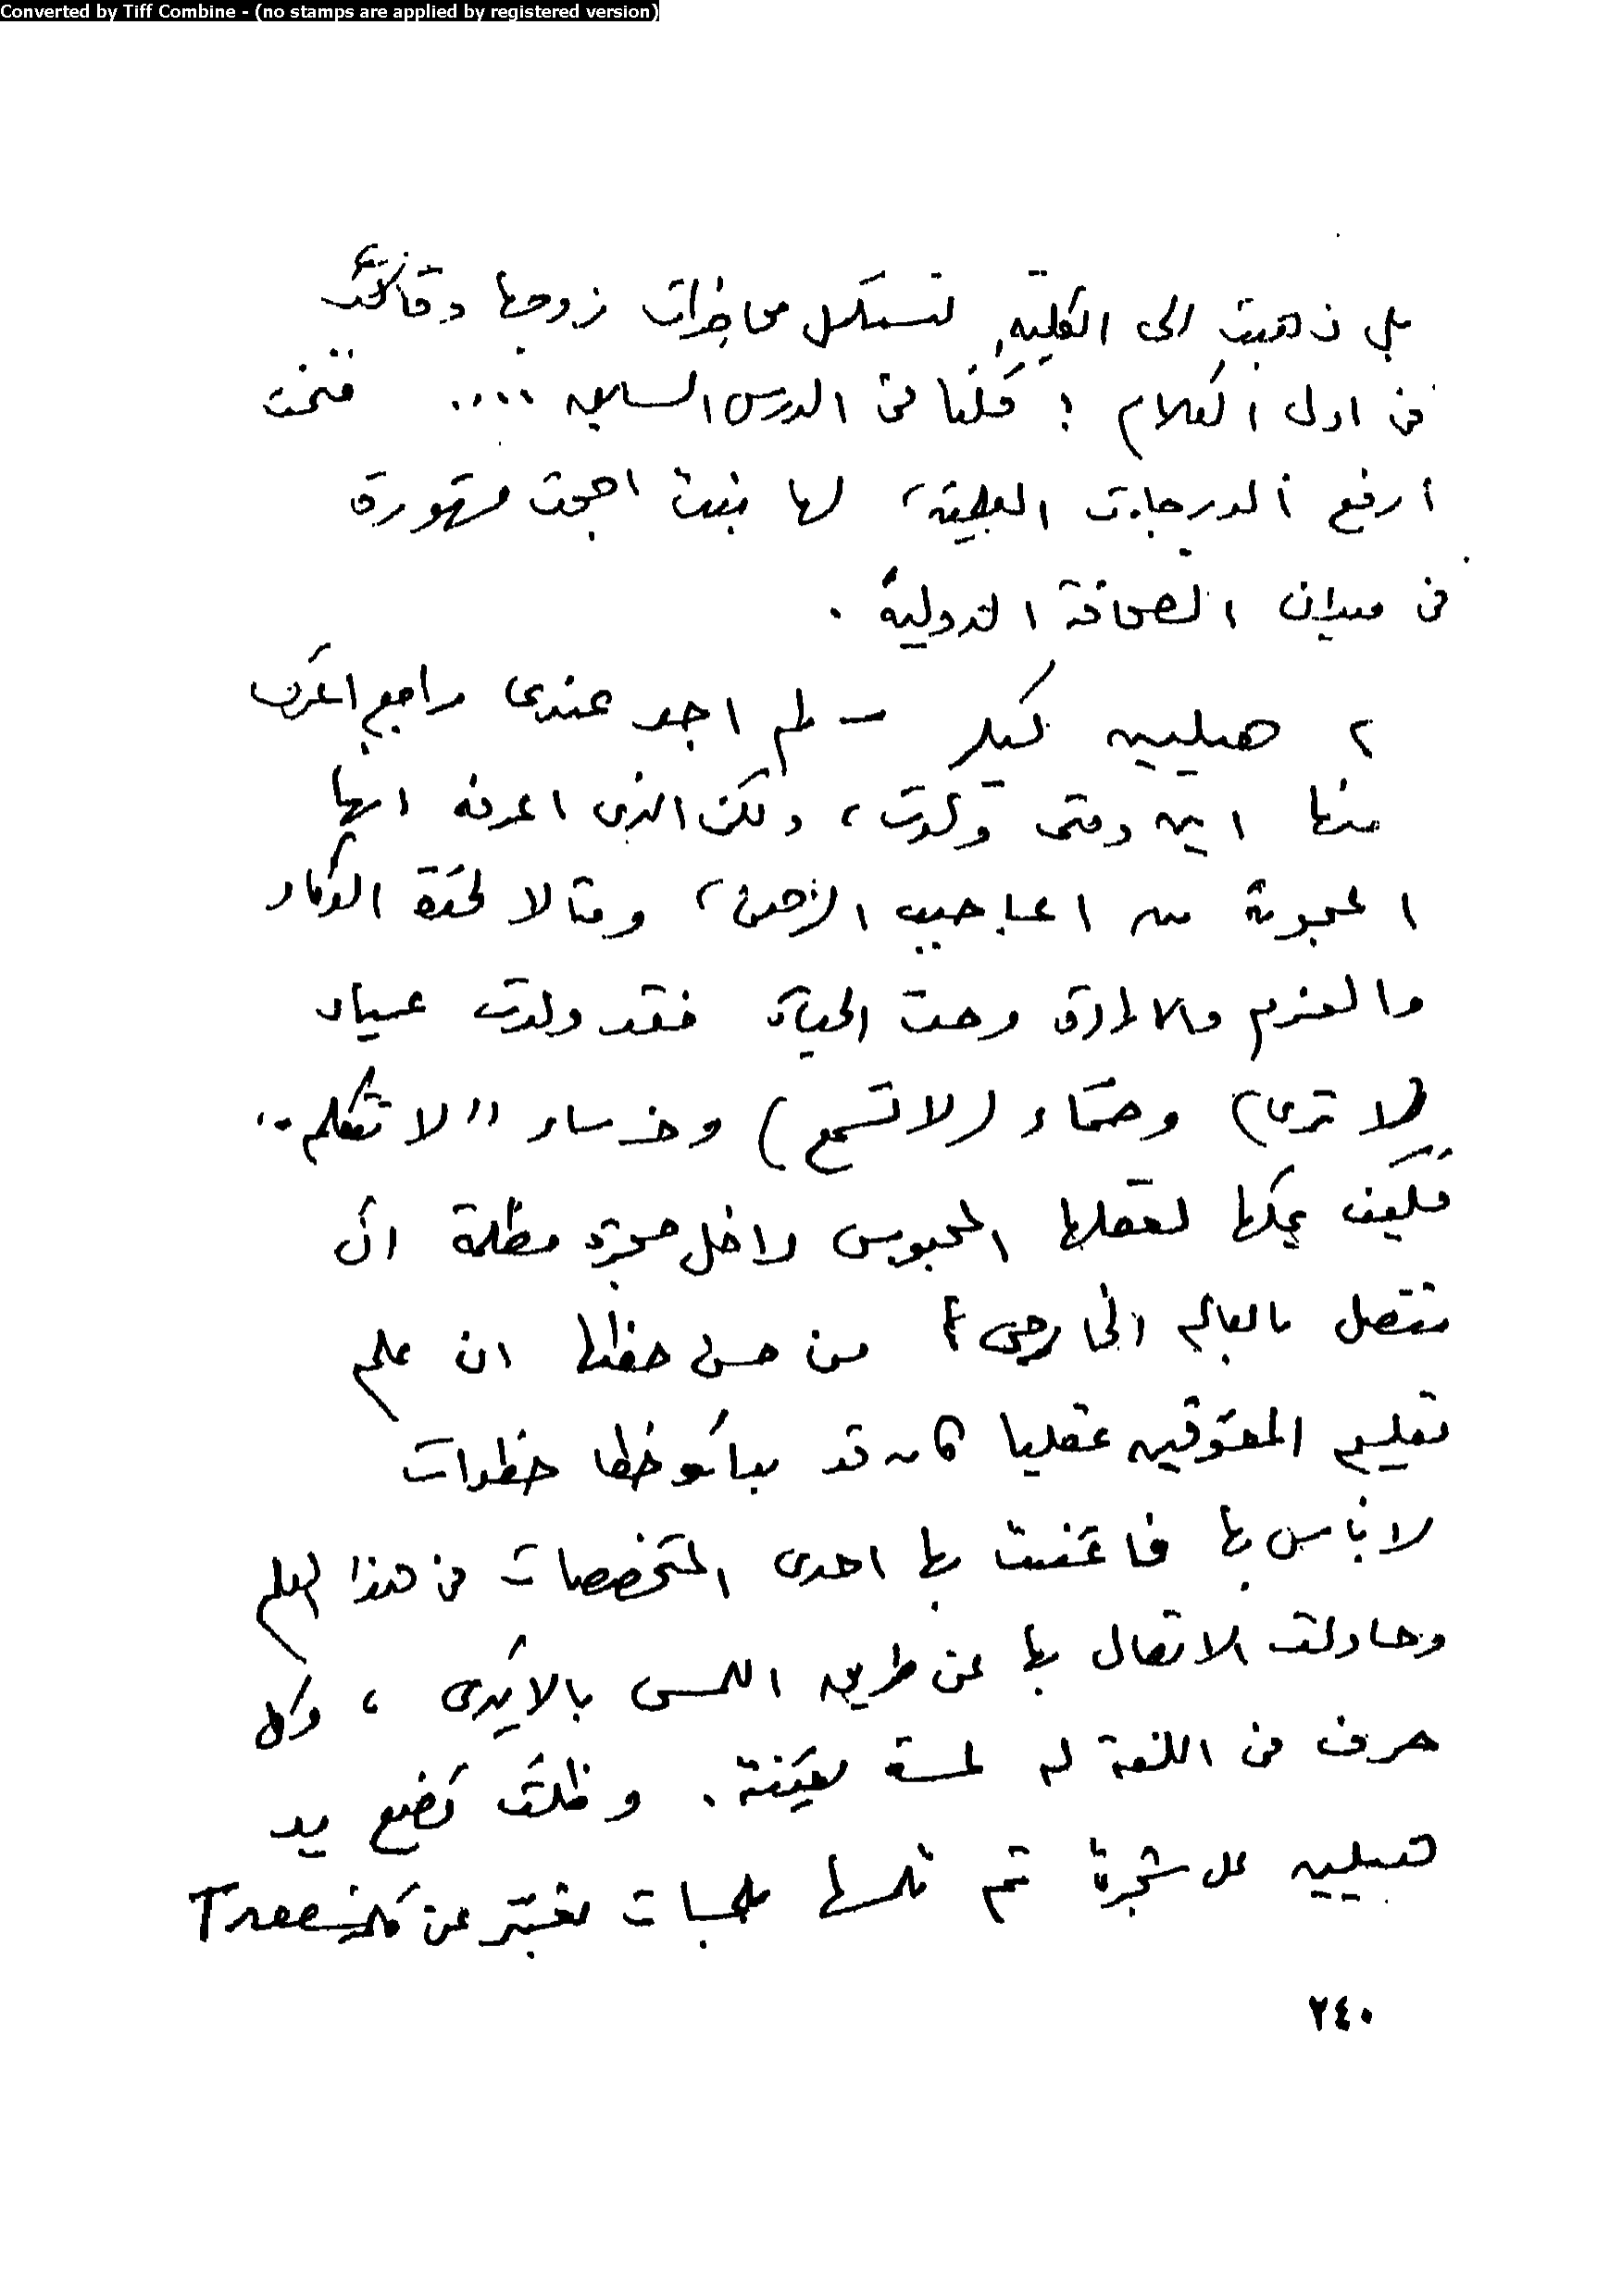 Converted by Tiff Combine - (no stamps are applied by registered version)
بل ذهبت الى الكلية، لتستكمل محاضرات زوجها وقالت
فى اول الكلام : قلنا فى الدرس السابق .... فتحت
ارفع الدرجات العلمية، لها بنت اصبحت مشهورة
فى ميدان الصحافة الدولية .
٢ هيلين كيلر - لم اجد عندى مراجع اعرف
منها اين ومتى ولدت، ولكن الذى اعرفه انها
اعجوبة من اعاجيب الزمن، ومثالا لحدة الذكاء
والعزم والارادة وحب الحياة فقد ولدت عمياء
(لا ترى) وصماء (لا تسمع) وخرساء "لا تتكلم"
فكيف يمكنها لعقلها المحبوس داخل حجرة مظلمة ان
تتصل بالعالم الخارجى؟ من حسن حظها ان علم
تعليم المعوقين عقليا كان قد بدأ وخطا خطوات
لا بأس بها فاعتنت بها احدى المتخصصات فى هذا العلم
وحاولت الاتصال بها عن طريق اللمس بالايدى ، وكل
حرف فى اللغة له لمسة معينة . وظلت تضع يد
هيلين على شجرة ثم تلمسها لمسات تعبر عن كلمة Tree
٢٤٠